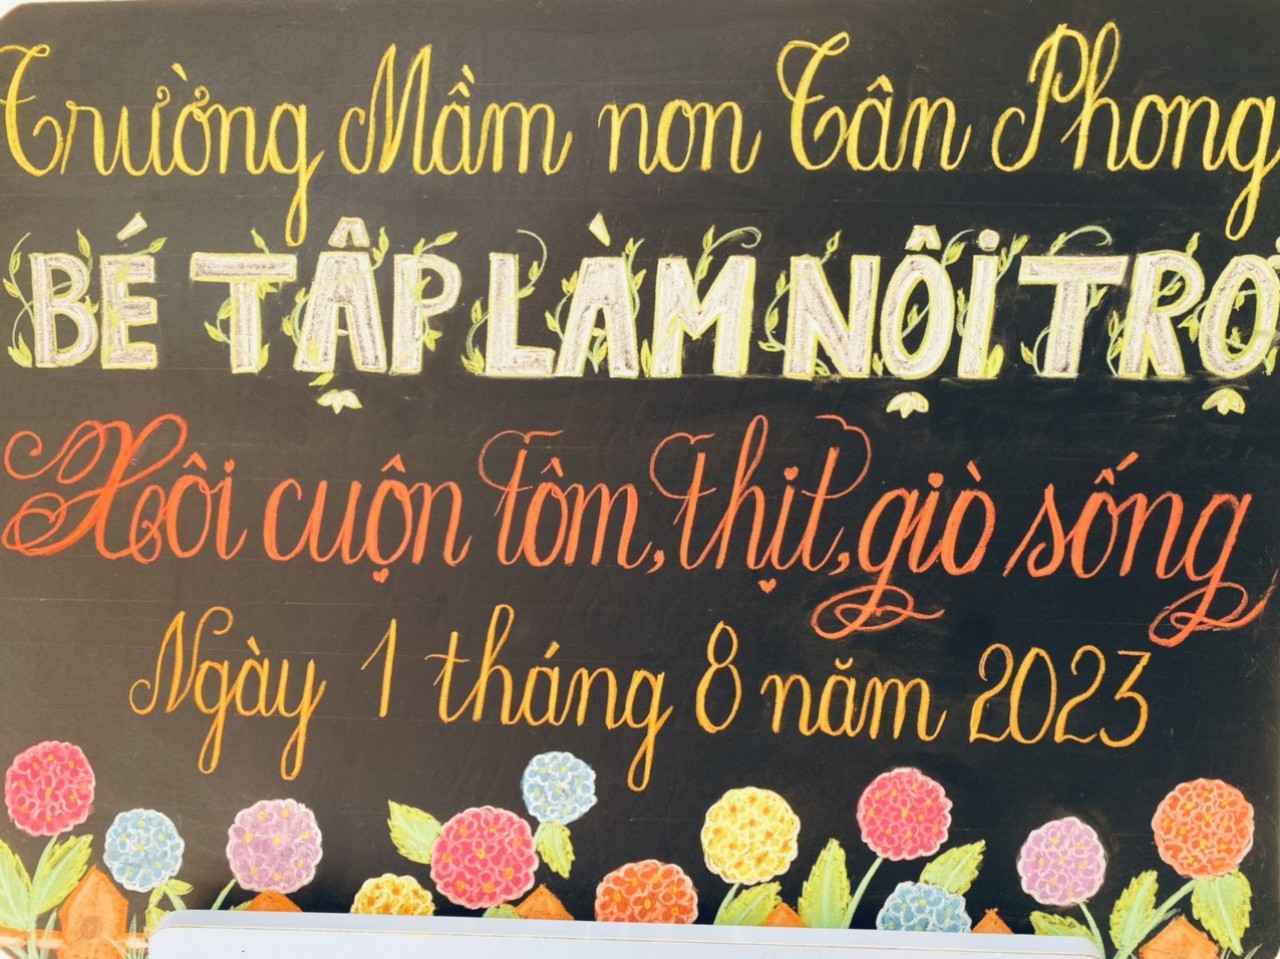 Trường Mầm non Tân Phong
BÉ TẬP LÀM NỘI TRỢ
Xôi cuộn tôm, thịt, giò sống
Ngày 1 tháng 8 năm 2023